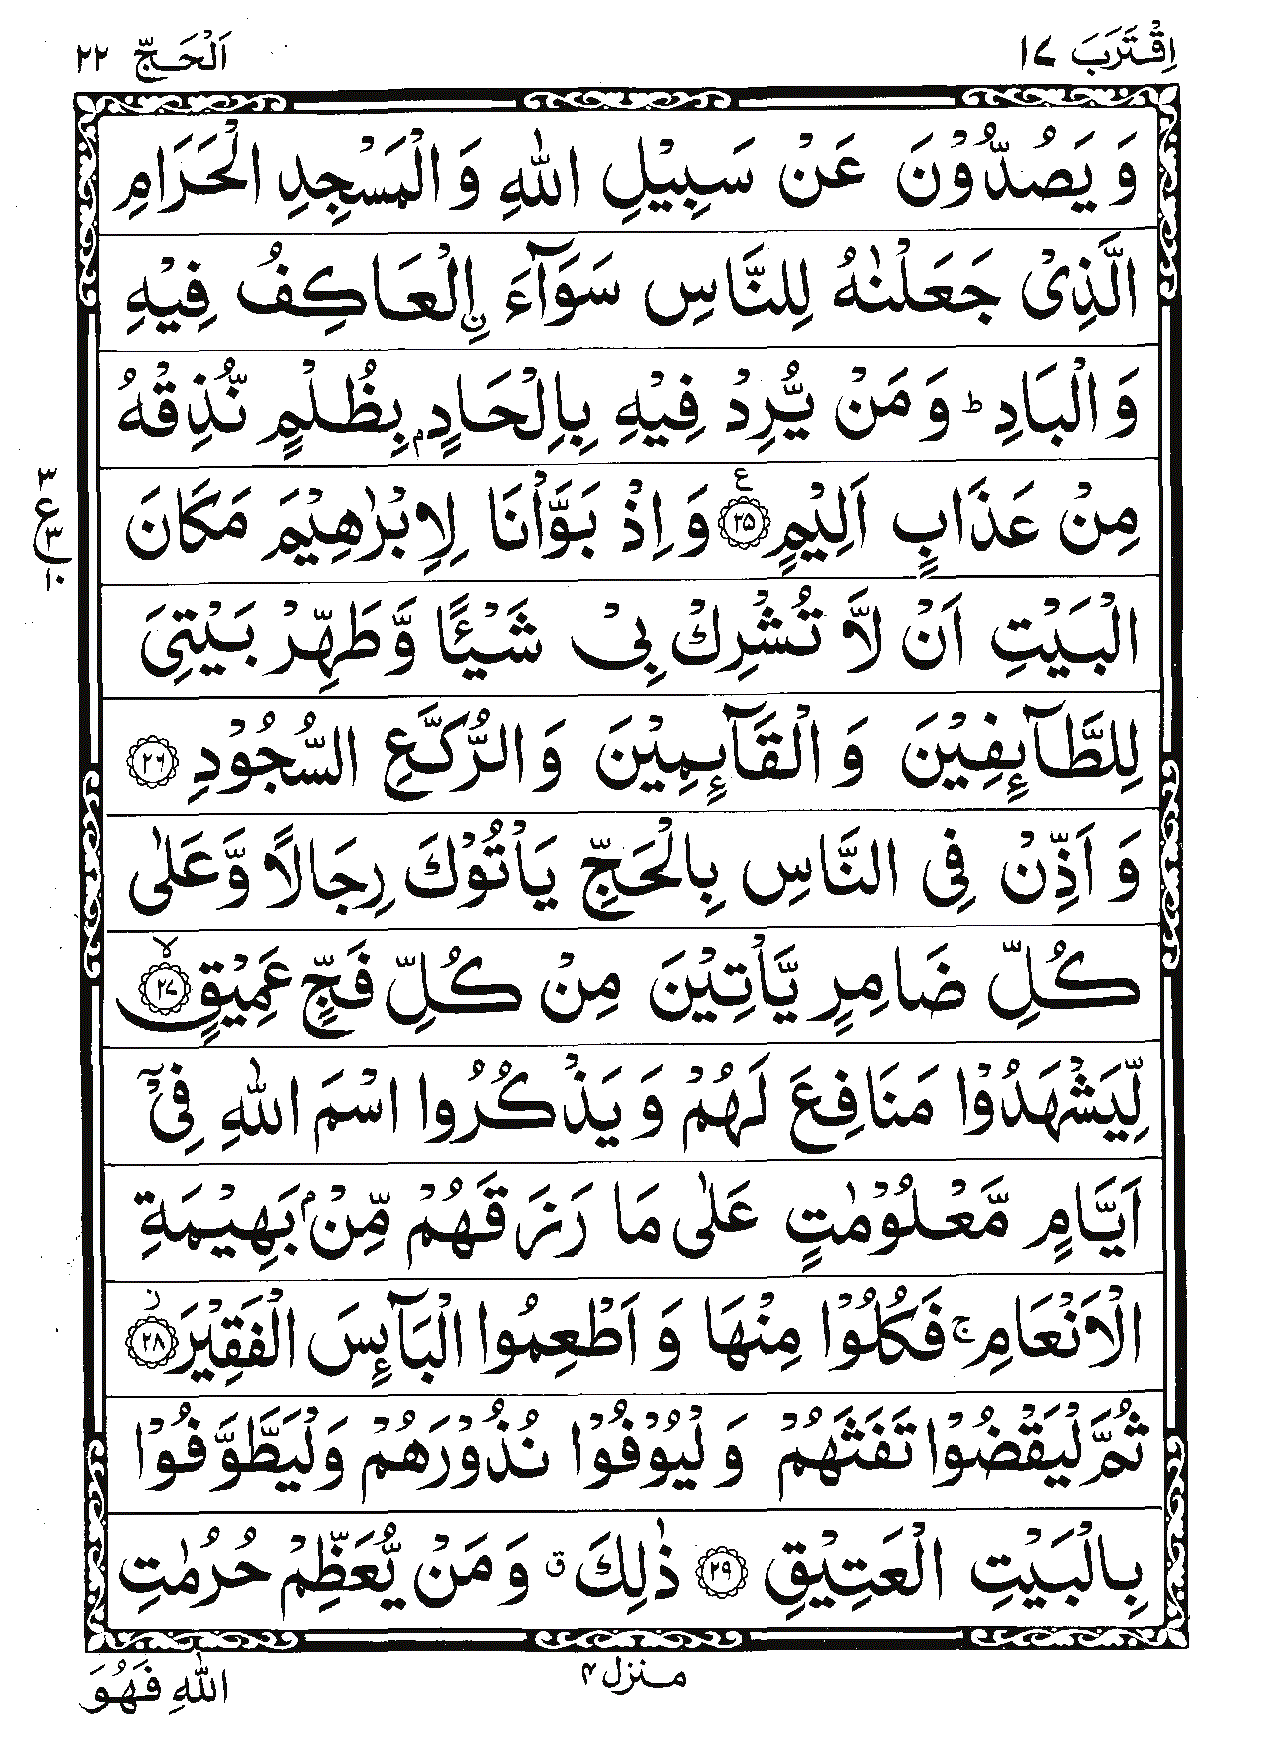 اِقْتَرَبَ ١٧ اَلْحَجّ ٢٢
وَ يَصُدُّوْنَ عَنْ سَبِيْلِ اللّٰهِ وَ الْمَسْجِدِ الْحَرَامِ
الَّذِیْ جَعَلْنٰهُ لِلنَّاسِ سَوَآءَ اۨلْعَاكِفُ فِيْهِ
وَ الْبَادِ ؕ وَ مَنْ يُّرِدْ فِيْهِ بِاِلْحَادٍۭ بِظُلْمٍ نُّذِقْهُ
مِنْ عَذَابٍ اَلِيْمٍ ۝٢٥ ع وَ اِذْ بَوَّاْنَا لِاِبْرٰهِيْمَ مَكَانَ
٣ ع ٣ ١٠
الْبَيْتِ اَنْ لَّا تُشْرِكْ بِیْ شَيْـًٔا وَّ طَهِّرْ بَيْتِیَ
لِلطَّآئِفِيْنَ وَ الْقَآئِمِيْنَ وَ الرُّكَّعِ السُّجُوْدِ ۝٢٦
وَ اَذِّنْ فِی النَّاسِ بِالْحَجِّ يَاْتُوْكَ رِجَالًا وَّ عَلٰی
كُلِّ ضَامِرٍ يَّاْتِيْنَ مِنْ كُلِّ فَجٍّ عَمِيْقٍ ۝٢٧ ۙ
لِّيَشْهَدُوْا مَنَافِعَ لَهُمْ وَ يَذْكُرُوا اسْمَ اللّٰهِ فِیْۤ
اَيَّامٍ مَّعْلُوْمٰتٍ عَلٰی مَا رَزَقَهُمْ مِّنْۢ بَهِيْمَةِ
الْاَنْعَامِ ۚ فَكُلُوْا مِنْهَا وَ اَطْعِمُوا الْبَآئِسَ الْفَقِيْرَ ۝٢٨ ز
ثُمَّ لْيَقْضُوْا تَفَثَهُمْ وَ لْيُوْفُوْا نُذُوْرَهُمْ وَ لْيَطَّوَّفُوْا
بِالْبَيْتِ الْعَتِيْقِ ۝٢٩ ذٰلِكَ ق وَ مَنْ يُّعَظِّمْ حُرُمٰتِ
منزل ٤
اللّٰهِ فَهُوَ